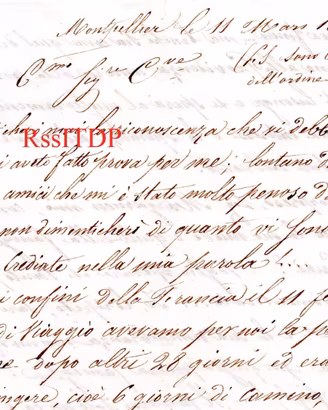 Montpellier le 11 Mars 1
C.mo Sig.re C.ve (Si Sono
dell'ordine
RssITDP
riconoscenza che si debb
i avete fatto prova per me; lontano d
amici che mi è stato molto penoso d
non dimenticherò di quanto vi sono
Crediate nella mia parola!...
i confini della Francia il 11 f
di Viaggio avevamo per noi la p
dopo altri 28 giorni ed er
ingere, cioè 6 giorni di Camino,